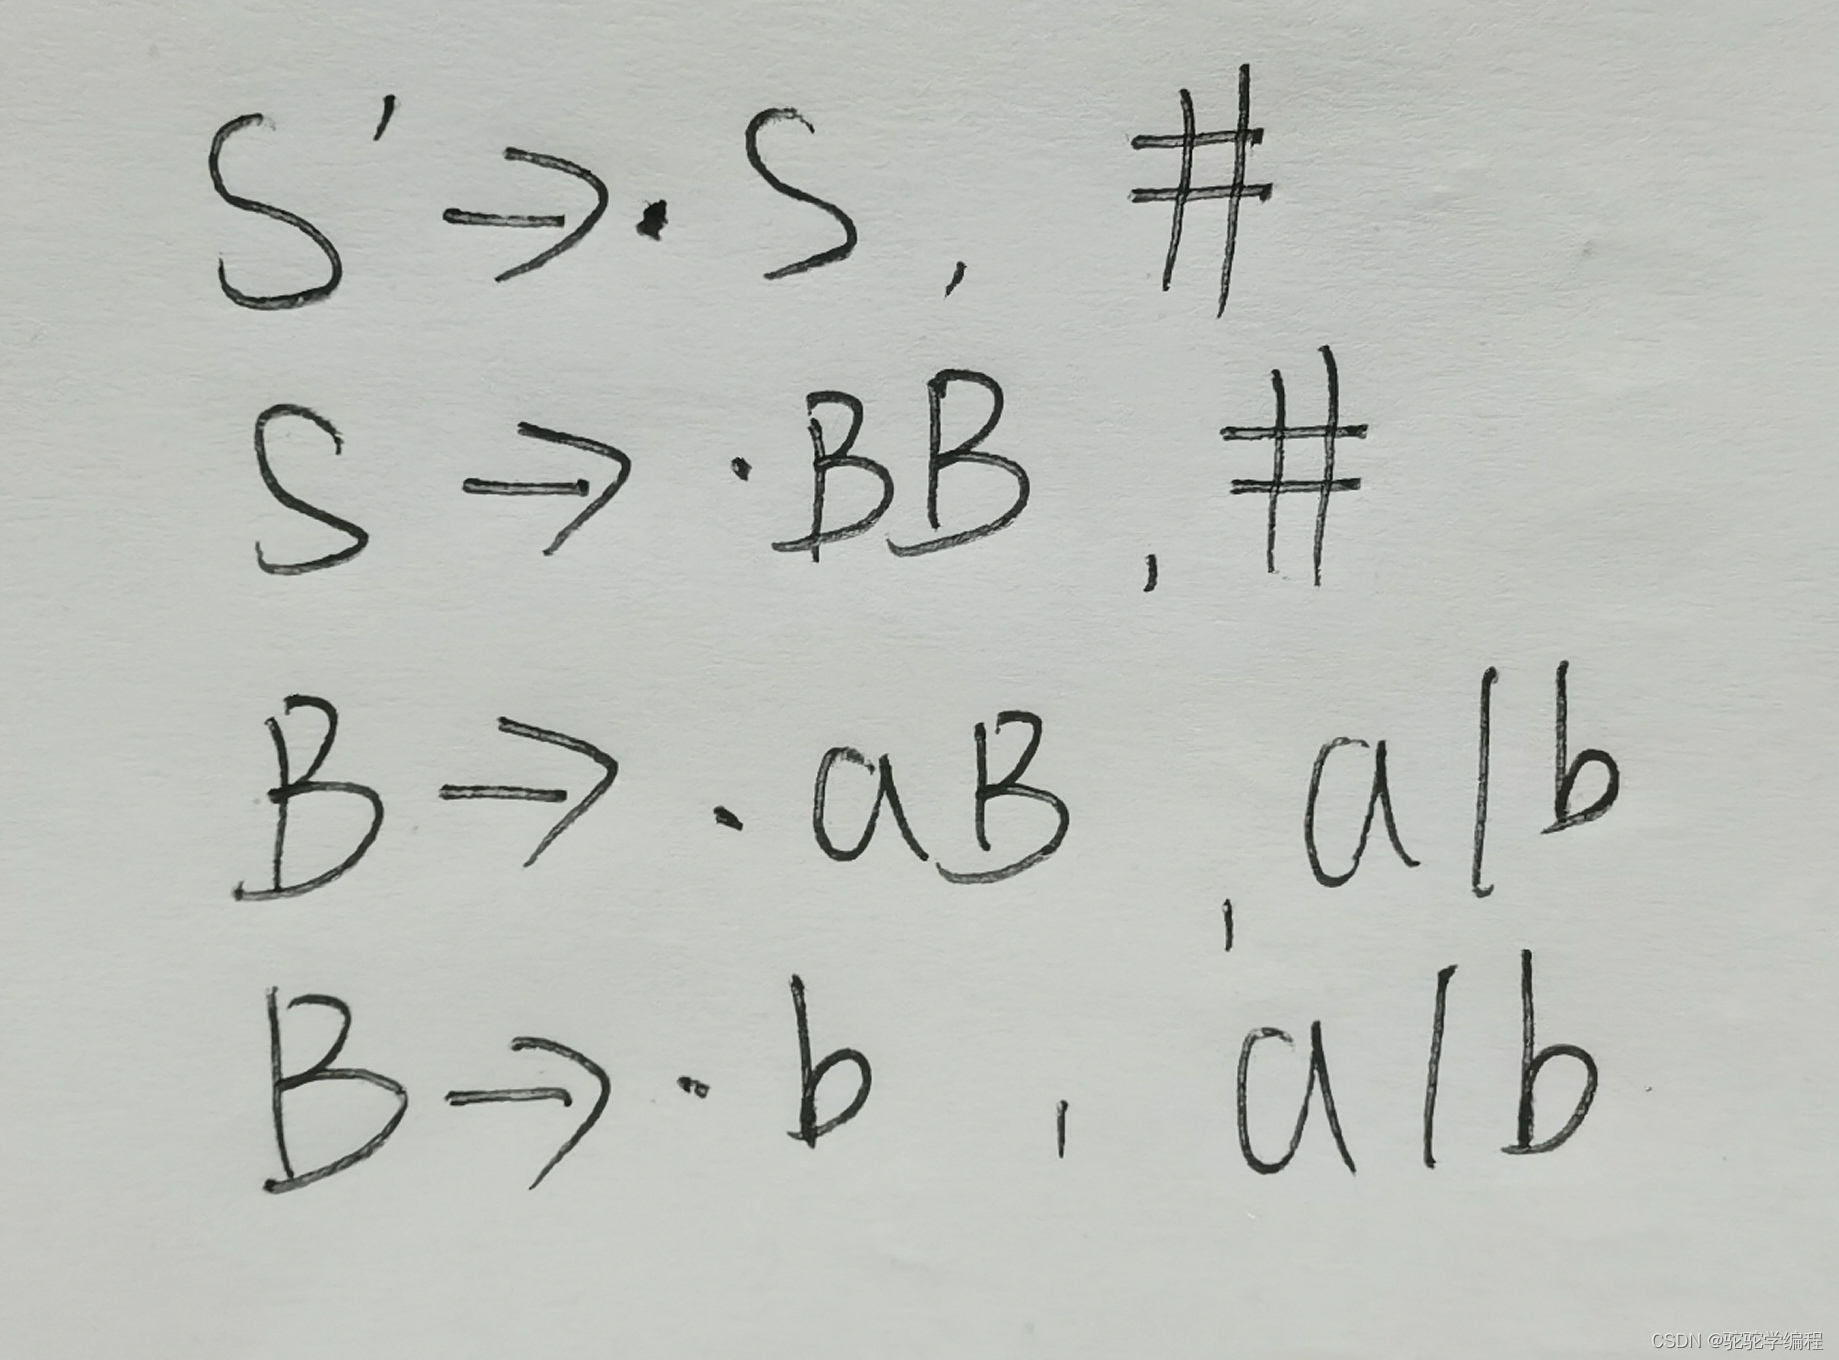 S' → · S , #
S → · BB , #
B → · aB , a | b
B → · b , a | b
CSDN @驼驼学编程